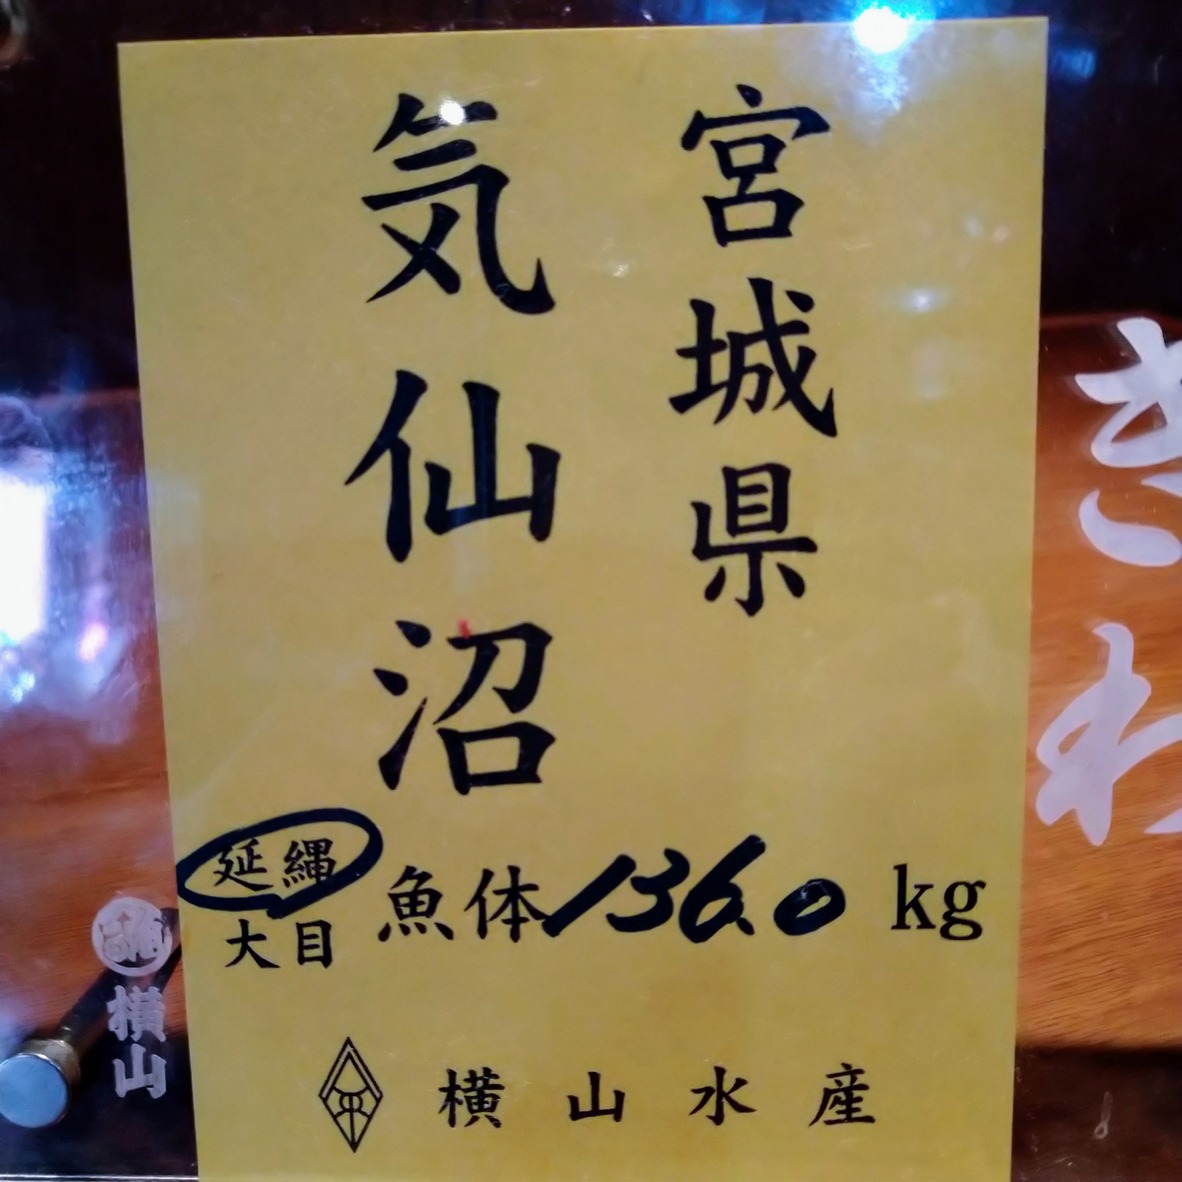 宮城県
気仙沼
延縄
大目
魚体136.0 kg
横山水産
横山
きわ